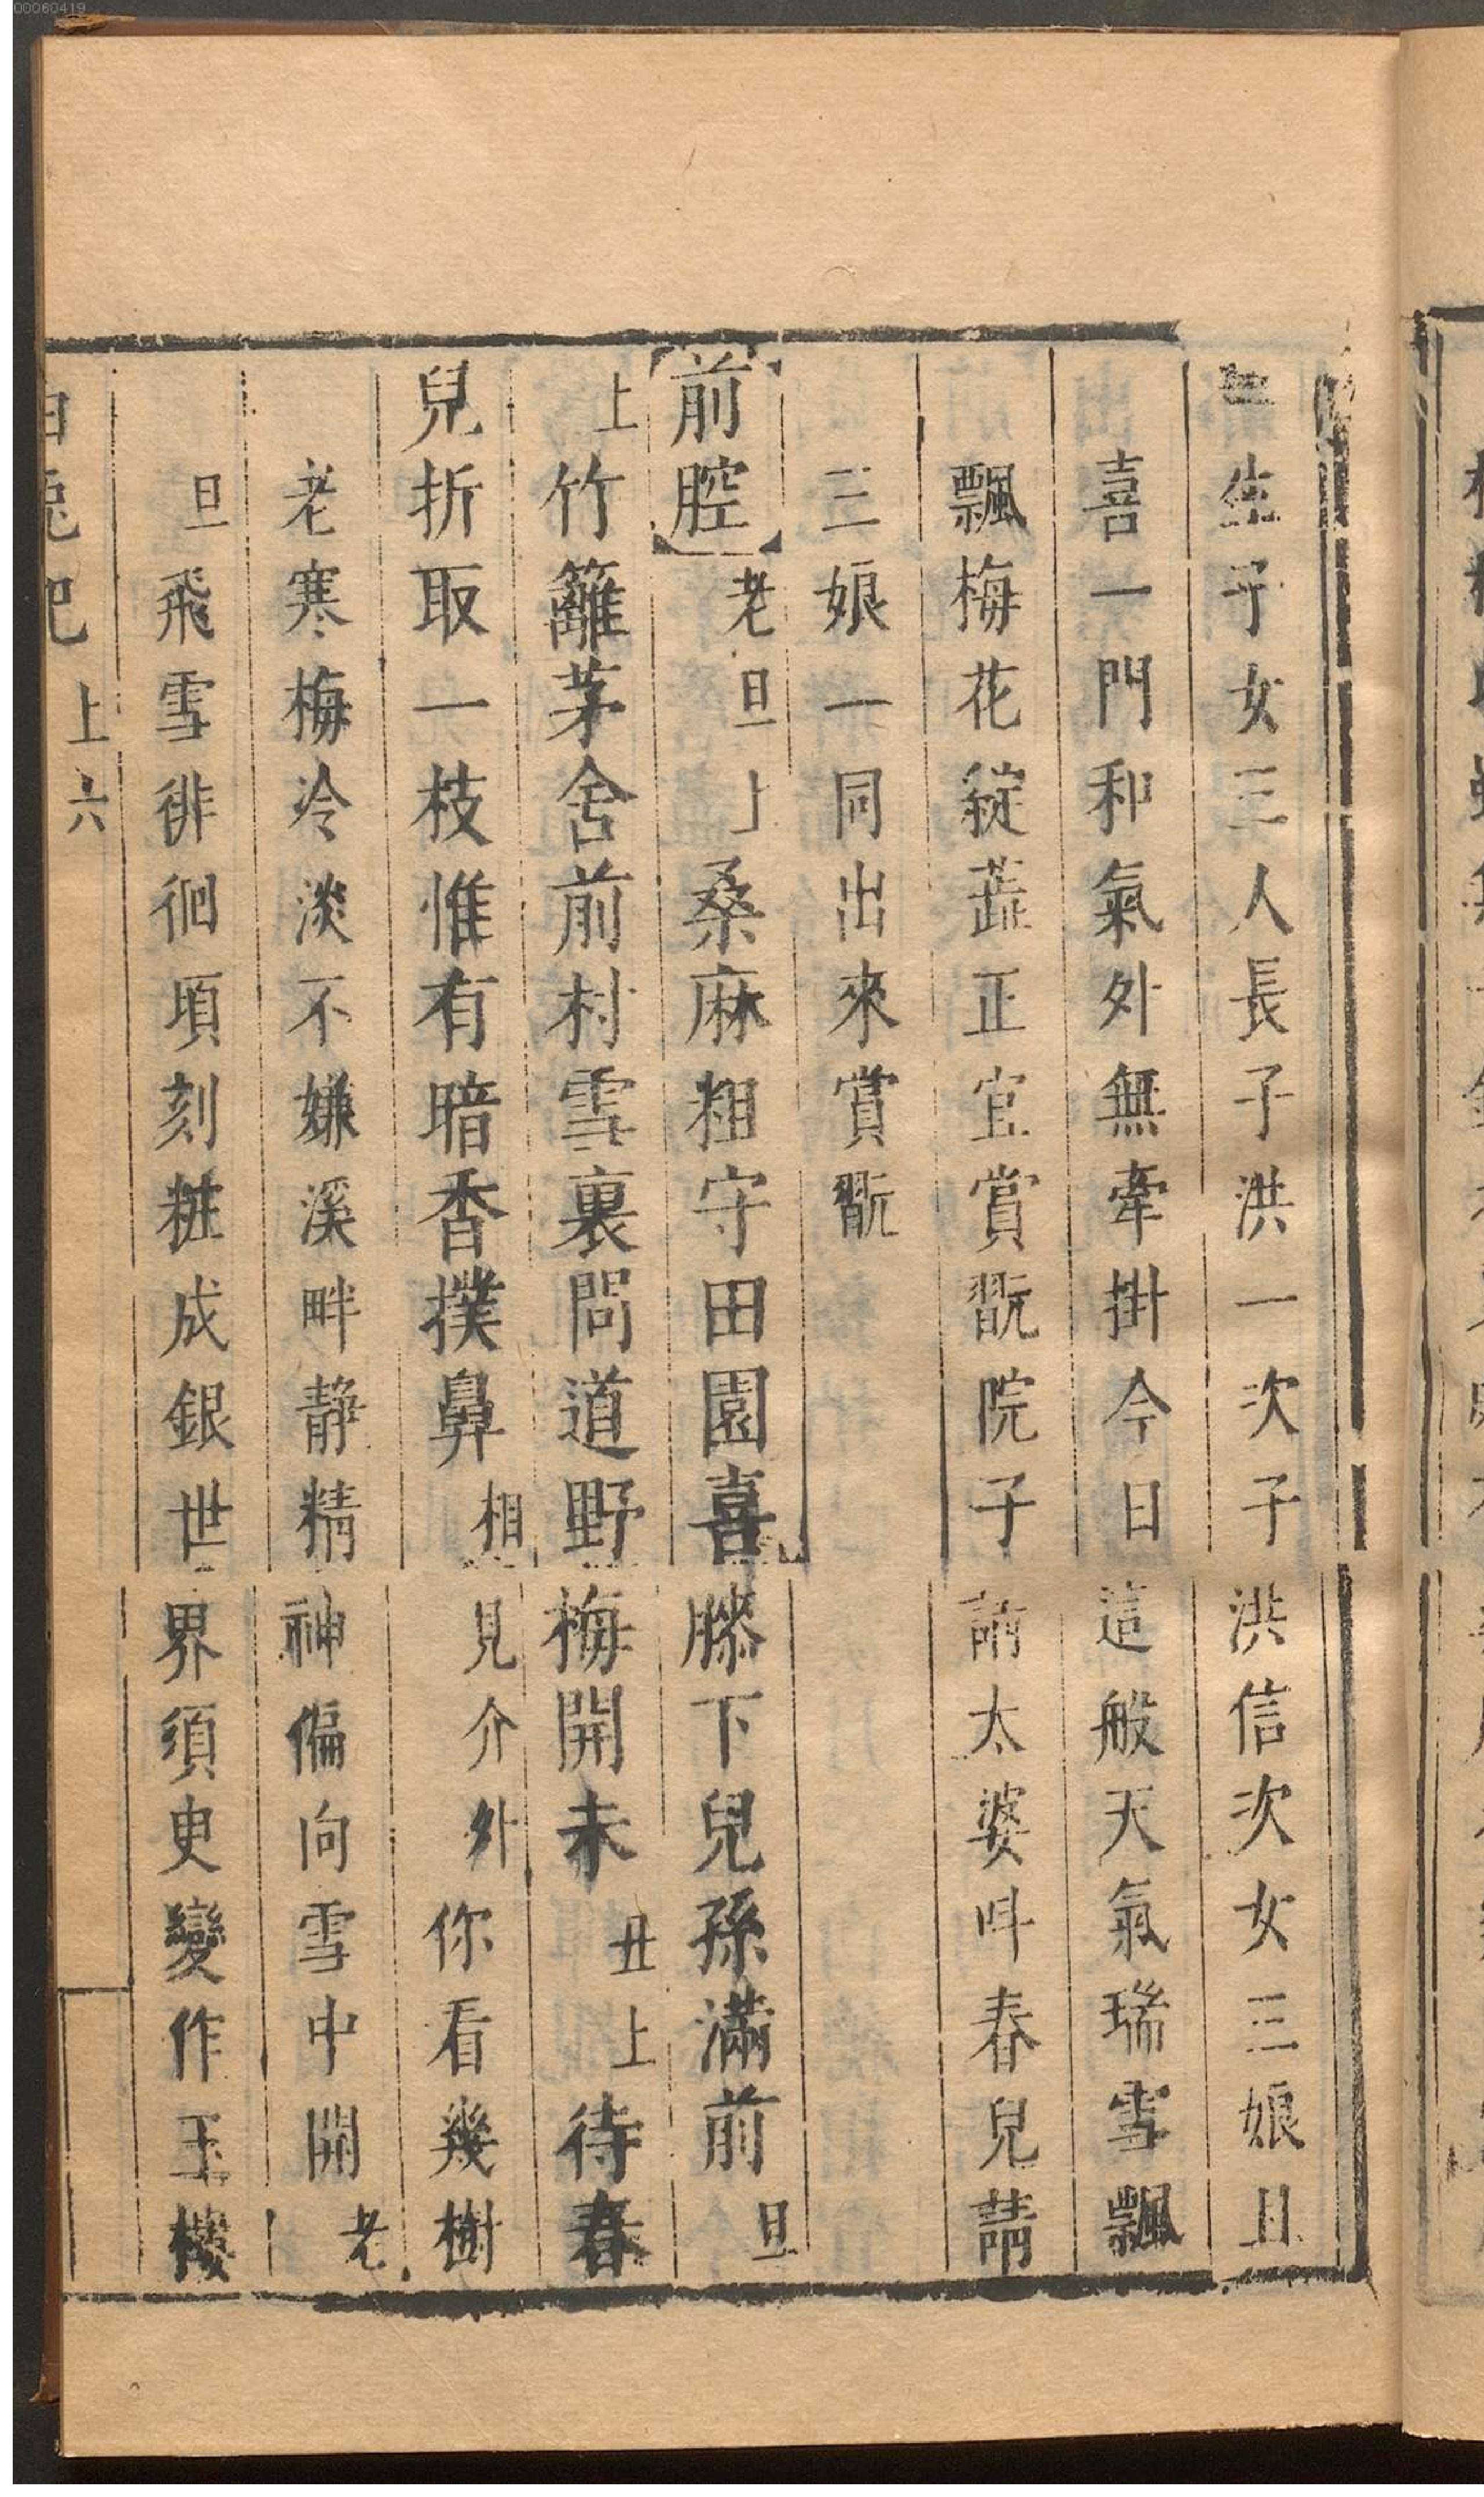 生子女三人長子洪一次子洪信次女三娘且
喜一門和氣外無牽掛今日這般天氣瑞雪飄
飄梅花綻蕋正宜賞翫院子請太婆呌春兒請
三娘一同出來賞翫
前腔老旦上桑麻粗守田園喜膝下兒孫滿前旦
上竹籬茅舍前村雪裏問道野梅開未丑上待春
兒折取一枝惟有暗香撲鼻相見介外你看幾樹
老寒梅冷淡不嫌溪畔靜精神偏向雪中開老
旦飛雪徘徊頃刻粧成銀世界須臾變作玉樓
上六
00060419